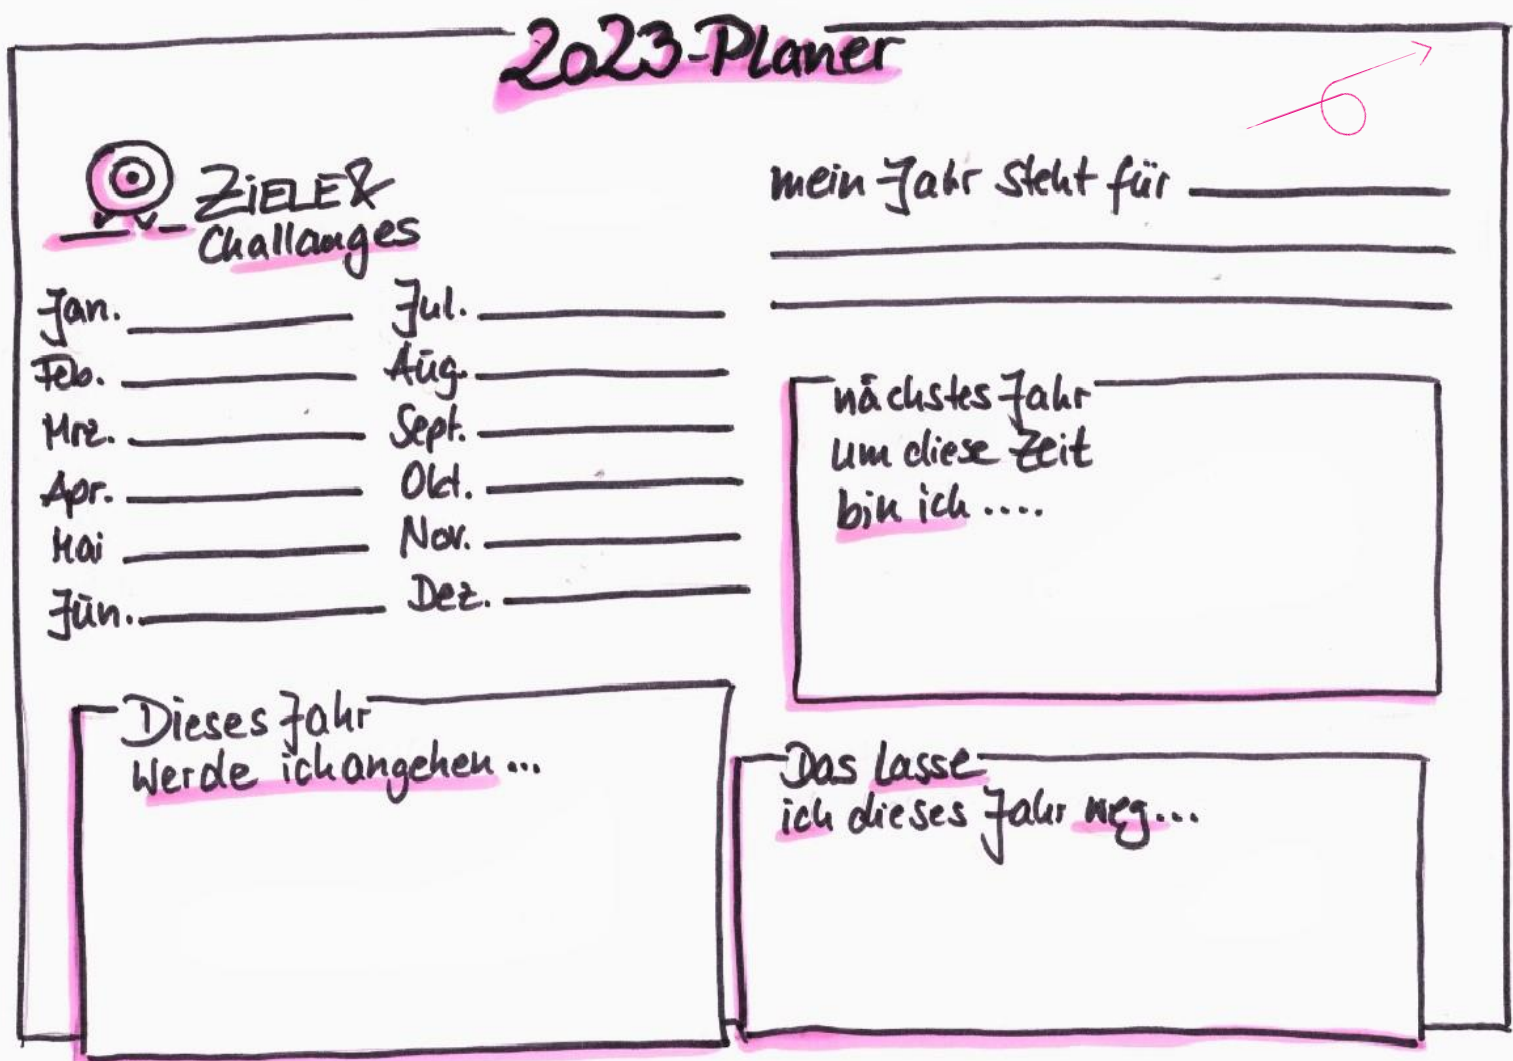 2023-Planer
ZiELE &
Challanges
Jan.
Feb.
Mrz.
Apr.
Mai
Jūn.
Jul.
Aūg.
Sept.
Okt.
Nov.
Dez.
mein Jahr steht für
nächstes Jahr
um diese Zeit
bin ich ....
Dieses Jahr
werde ich angehen ...
Das lasse
ich dieses Jahr weg...